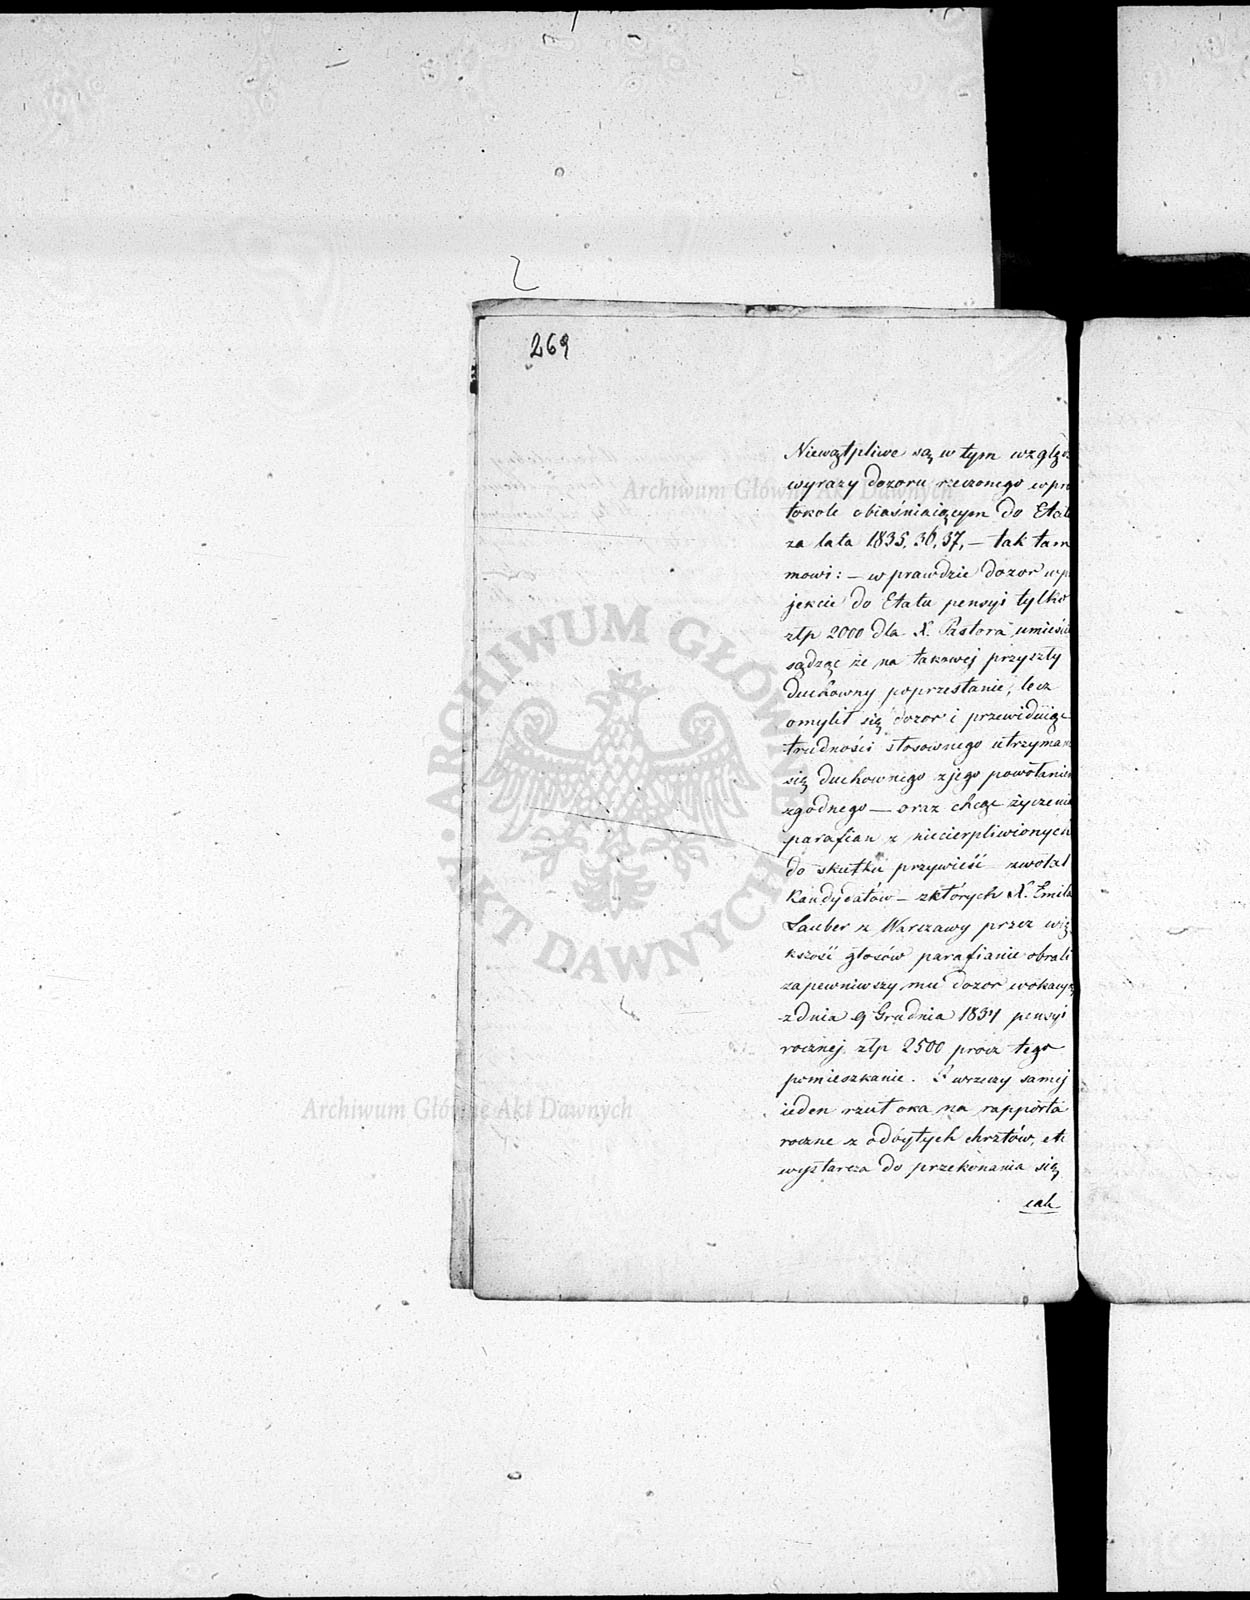 269
Niewątpliwe są w tym wzglę
wyrazy dozoru rzeczonego w pro
tokole obiaśniaiącym do Etatu
za lata 1835, 36, 37, — tak tam
mowi: — w prawdzie dozor w pro
jekcie do Etatu pensyi tylko
złp 2000 dla X. Pastora umieścił
sądząc że na takowej przyszły
duchowny poprzestanie, lecz
omylił się dozor i przewiduiąc
trudności stosownego utrzymania
się duchownego z jego powołaniem
zgodnego — oraz chcąc życzenie
parafian z niecierpliwionych
do skutku przywieść zwołał
kandydatów — z których X. Emila
Lauber z Warszawy przez wię
kszość głosów parafianie obrali
zapewniwszy mu dozor wokacyą
z dnia 9 Grudnia 1834 pensyi
rocznej złp 2500 procz tego
pomieszkanie. I w rzeczy samej
ieden rzut oka na rapporta
roczne z odbytych chrztów, etc
wystarcza do przekonania się
iak
Archiwum Główne Akt Dawnych
ARCHIWUM GŁÓWNE AKT DAWNYCH
Archiwum Główne Akt Dawnych